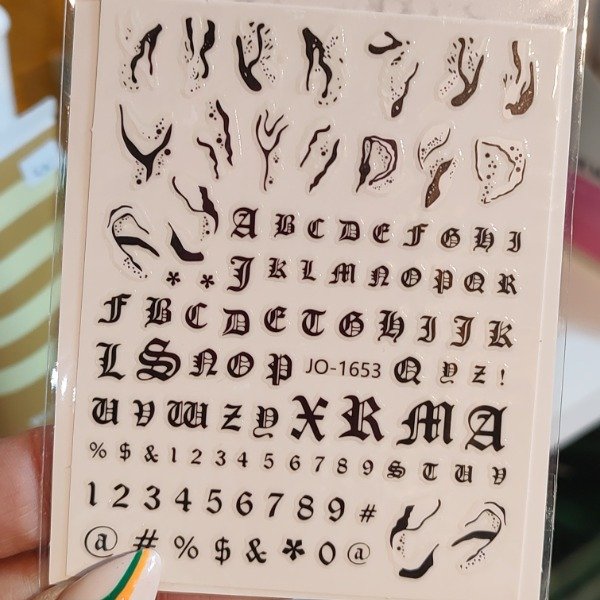 * * A B C D E F G H I
J K L M N O P Q R
F B C D E T G H I J K
L S N O P JO-1653 Q Y Z !
U V W Z Y X R M A
% $ & 1 2 3 4 5 6 7 8 9 S T U V
1 2 3 4 5 6 7 8 9 #
@ # % $ & * 0 @